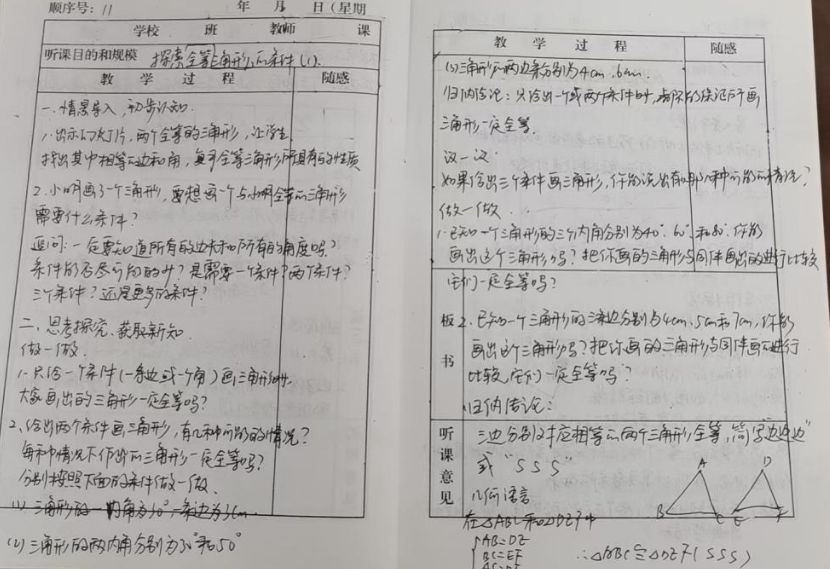 顺序号: 11 年 月 日(星期
学校 班 教师 课
听课目的和规模 探索全等三角形的条件(1).
教学过程 随感
一、情景导入,初步认知.
1.出示幻灯片,两个全等的三角形,让学生
找出其中相等的边和角,复习全等三角形所具有的性质
2.小明画了一个三角形,要想画一个与小明全等的三角形
需要什么条件?
追问:一定要知道所有的边长和所有的角度吗?
条件能否尽可能的少?是需要一个条件?两个条件?
三个条件?还是更多的条件?
二、思考探究、获取新知
做一做.
1.只给一个条件(一条边或一个角)画三角形时,
大家画出的三角形一定全等吗?
2、给出两个条件画三角形,有几种可能的情况?
每种情况下作出的三角形一定全等吗?
分别按照下面的条件做一做.
(1) 三角形的一内角为30°,一条边为3cm.
(2) 三角形的两内角分别为30°和50°
教学过程 随感
(3)三角形的两边分别为4cm.6cm.
归纳结论:只给出一个或两个条件时,都不能保证所画
三角形一定全等.
议一议.
如果给出三个条件画三角形,你能说出有哪几种可能的情况?
做一做..
1.已知一个三角形的三个内角分别为40°.60°和80°.你能
画出这个三角形吗?把你画的三角形与同伴画出的进行比较
它们一定全等吗?
板书
2.已知一个三角形的三条边分别为4cm、5cm和7cm,你能
画出这个三角形吗?把你画的三角形与同伴画的进行
比较,它们一定全等吗?
归纳结论:
听课意见
三边分别对应相等的两个三角形全等,简写"边边边"
或"SSS"
几何语言
在△ABC和△DEF中
AB=DE
BC=EF
AC=DF
∴△ABC≌△DEF(SSS)
A
B
C
D
E
F